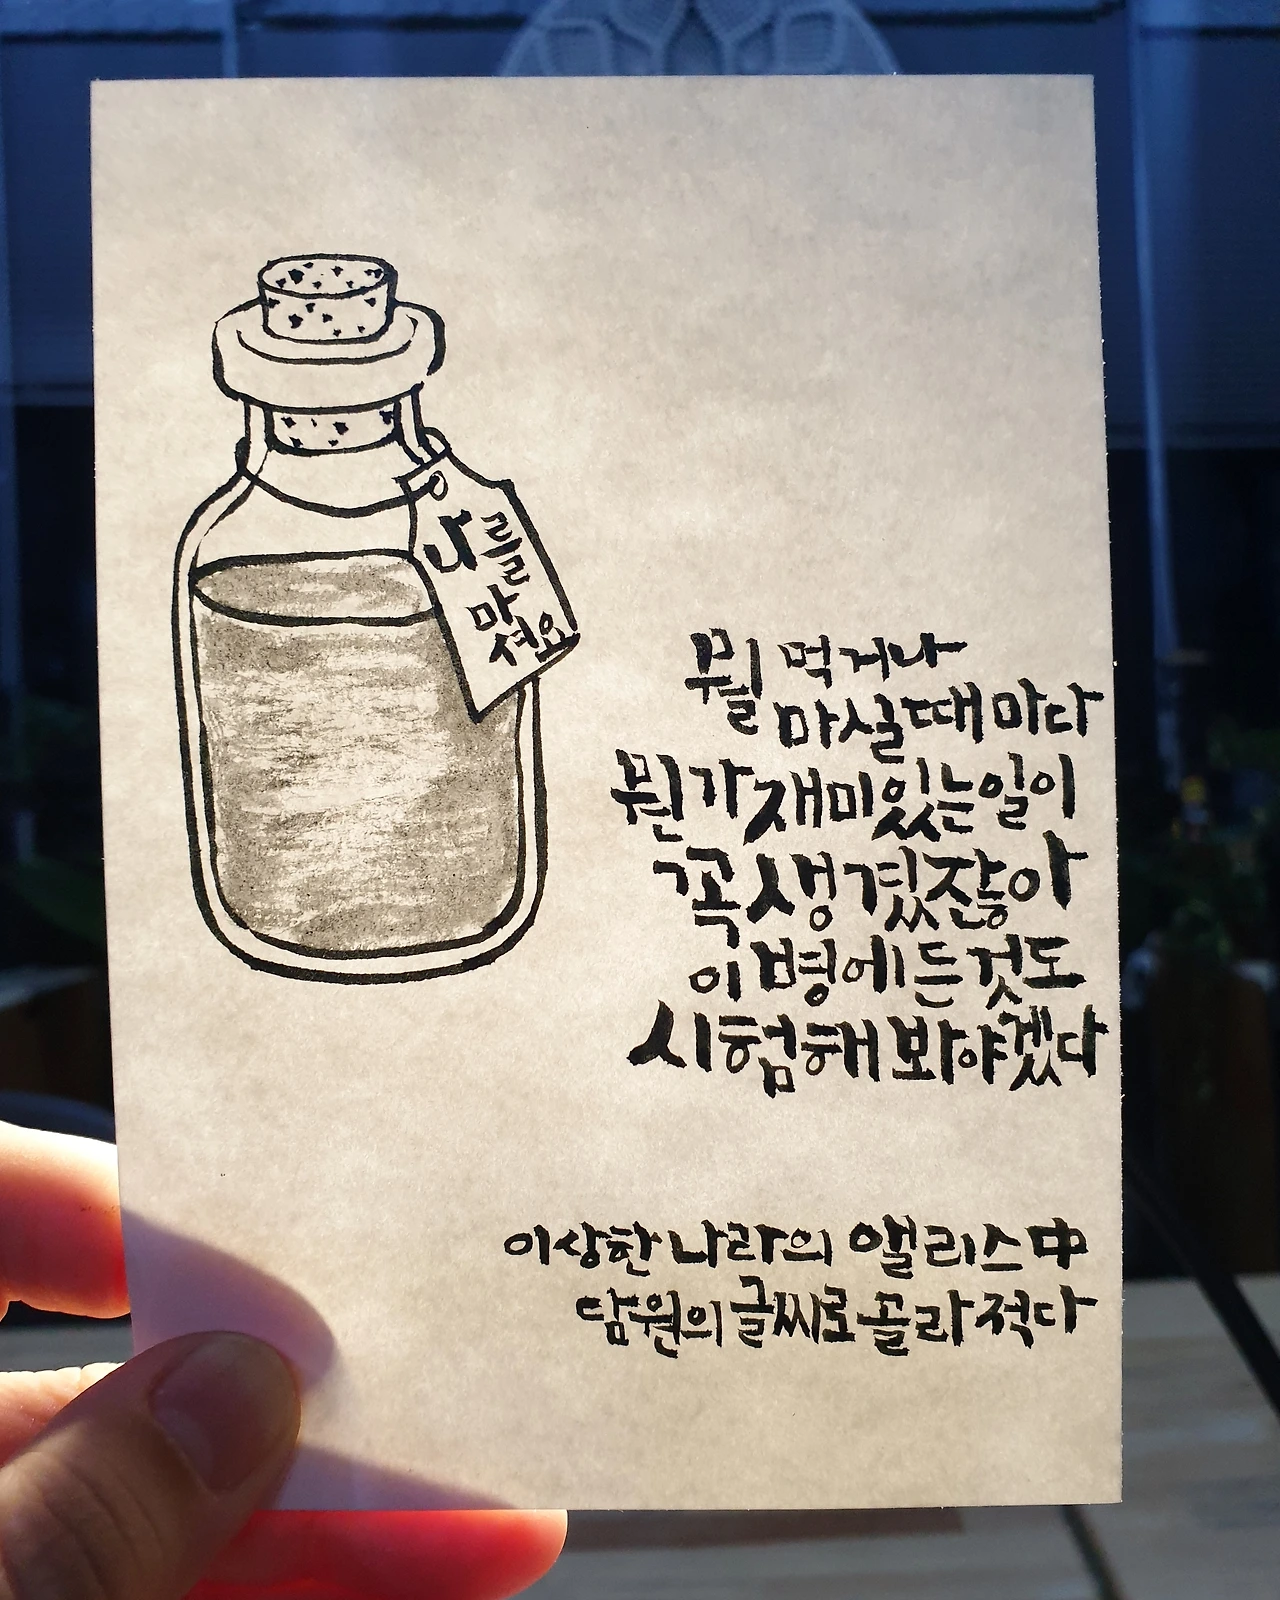 나를
마셔요
뭘 먹거나
마실때마다
뭔가 재미있는일이
꼭 생겼잖아
이 병에 든 것도
시험해 봐야겠다
이상한 나라의 앨리스 中
담원의 글씨로 골라 적다